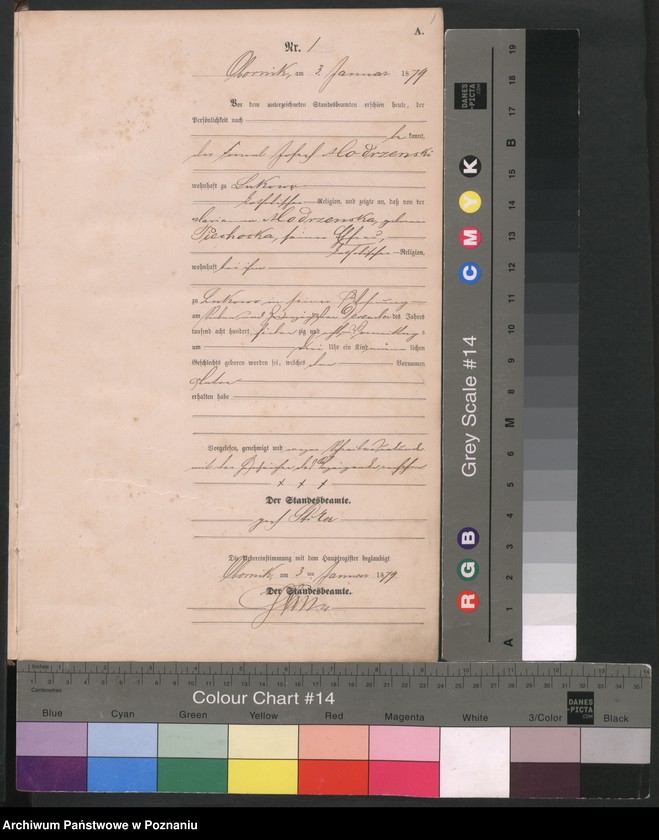 A.
Nr. 1
Obornik, am 3. Januar 1879
Vor dem unterzeichneten Standesbeamten erschien heute, der
Persönlichkeit nach
be kannt,
Joseph Modrzenski
wohnhaft zu Lukowo
katholischer Religion, und zeigte an, daß von der
Marianna Modrzenska, geborene
Piechocka, seiner Ehefrau,
katholischer Religion,
wohnhaft bei ihm
zu Lukowo in seiner Wohnung
am sieben und zwanzigsten December des Jahres
tausend acht hundert sieben zig und acht Vormittags
um drei Uhr ein Kind männ lichen
Geschlechts geboren worden sei, welches den Vornamen
erhalten habe
Vorgelesen, genehmigt und wegen
mit den Handzeichen des Anzeigenden versehen
+ + +
Der Standesbeamte.
Die Uebereinstimmung mit dem Hauptregister beglaubigt
Obornik, am 3 ten Januar 1879
Der Standesbeamte.
DANES
-PICTA
.COM
Grey Scale #14
R G B C M Y K
A 1 2 3 4 5 6 M 8 9 10 11 12 13 14 15 B 17 18 19
Inches 1 2 3 4 5 6 7 8 9 10 11 12 13 14
Centimetres
1 2 3 4 5 6 7 8 9 10 11 12 13 14 15 16 17 18 19 20 21 22 23 24 25 26 27 28 29 30 31 32 33 34 35
Colour Chart #14
DANES
-PICTA
.COM
Blue Cyan Green Yellow Red Magenta White 3/Color Black
Archiwum Państwowe w Poznaniu